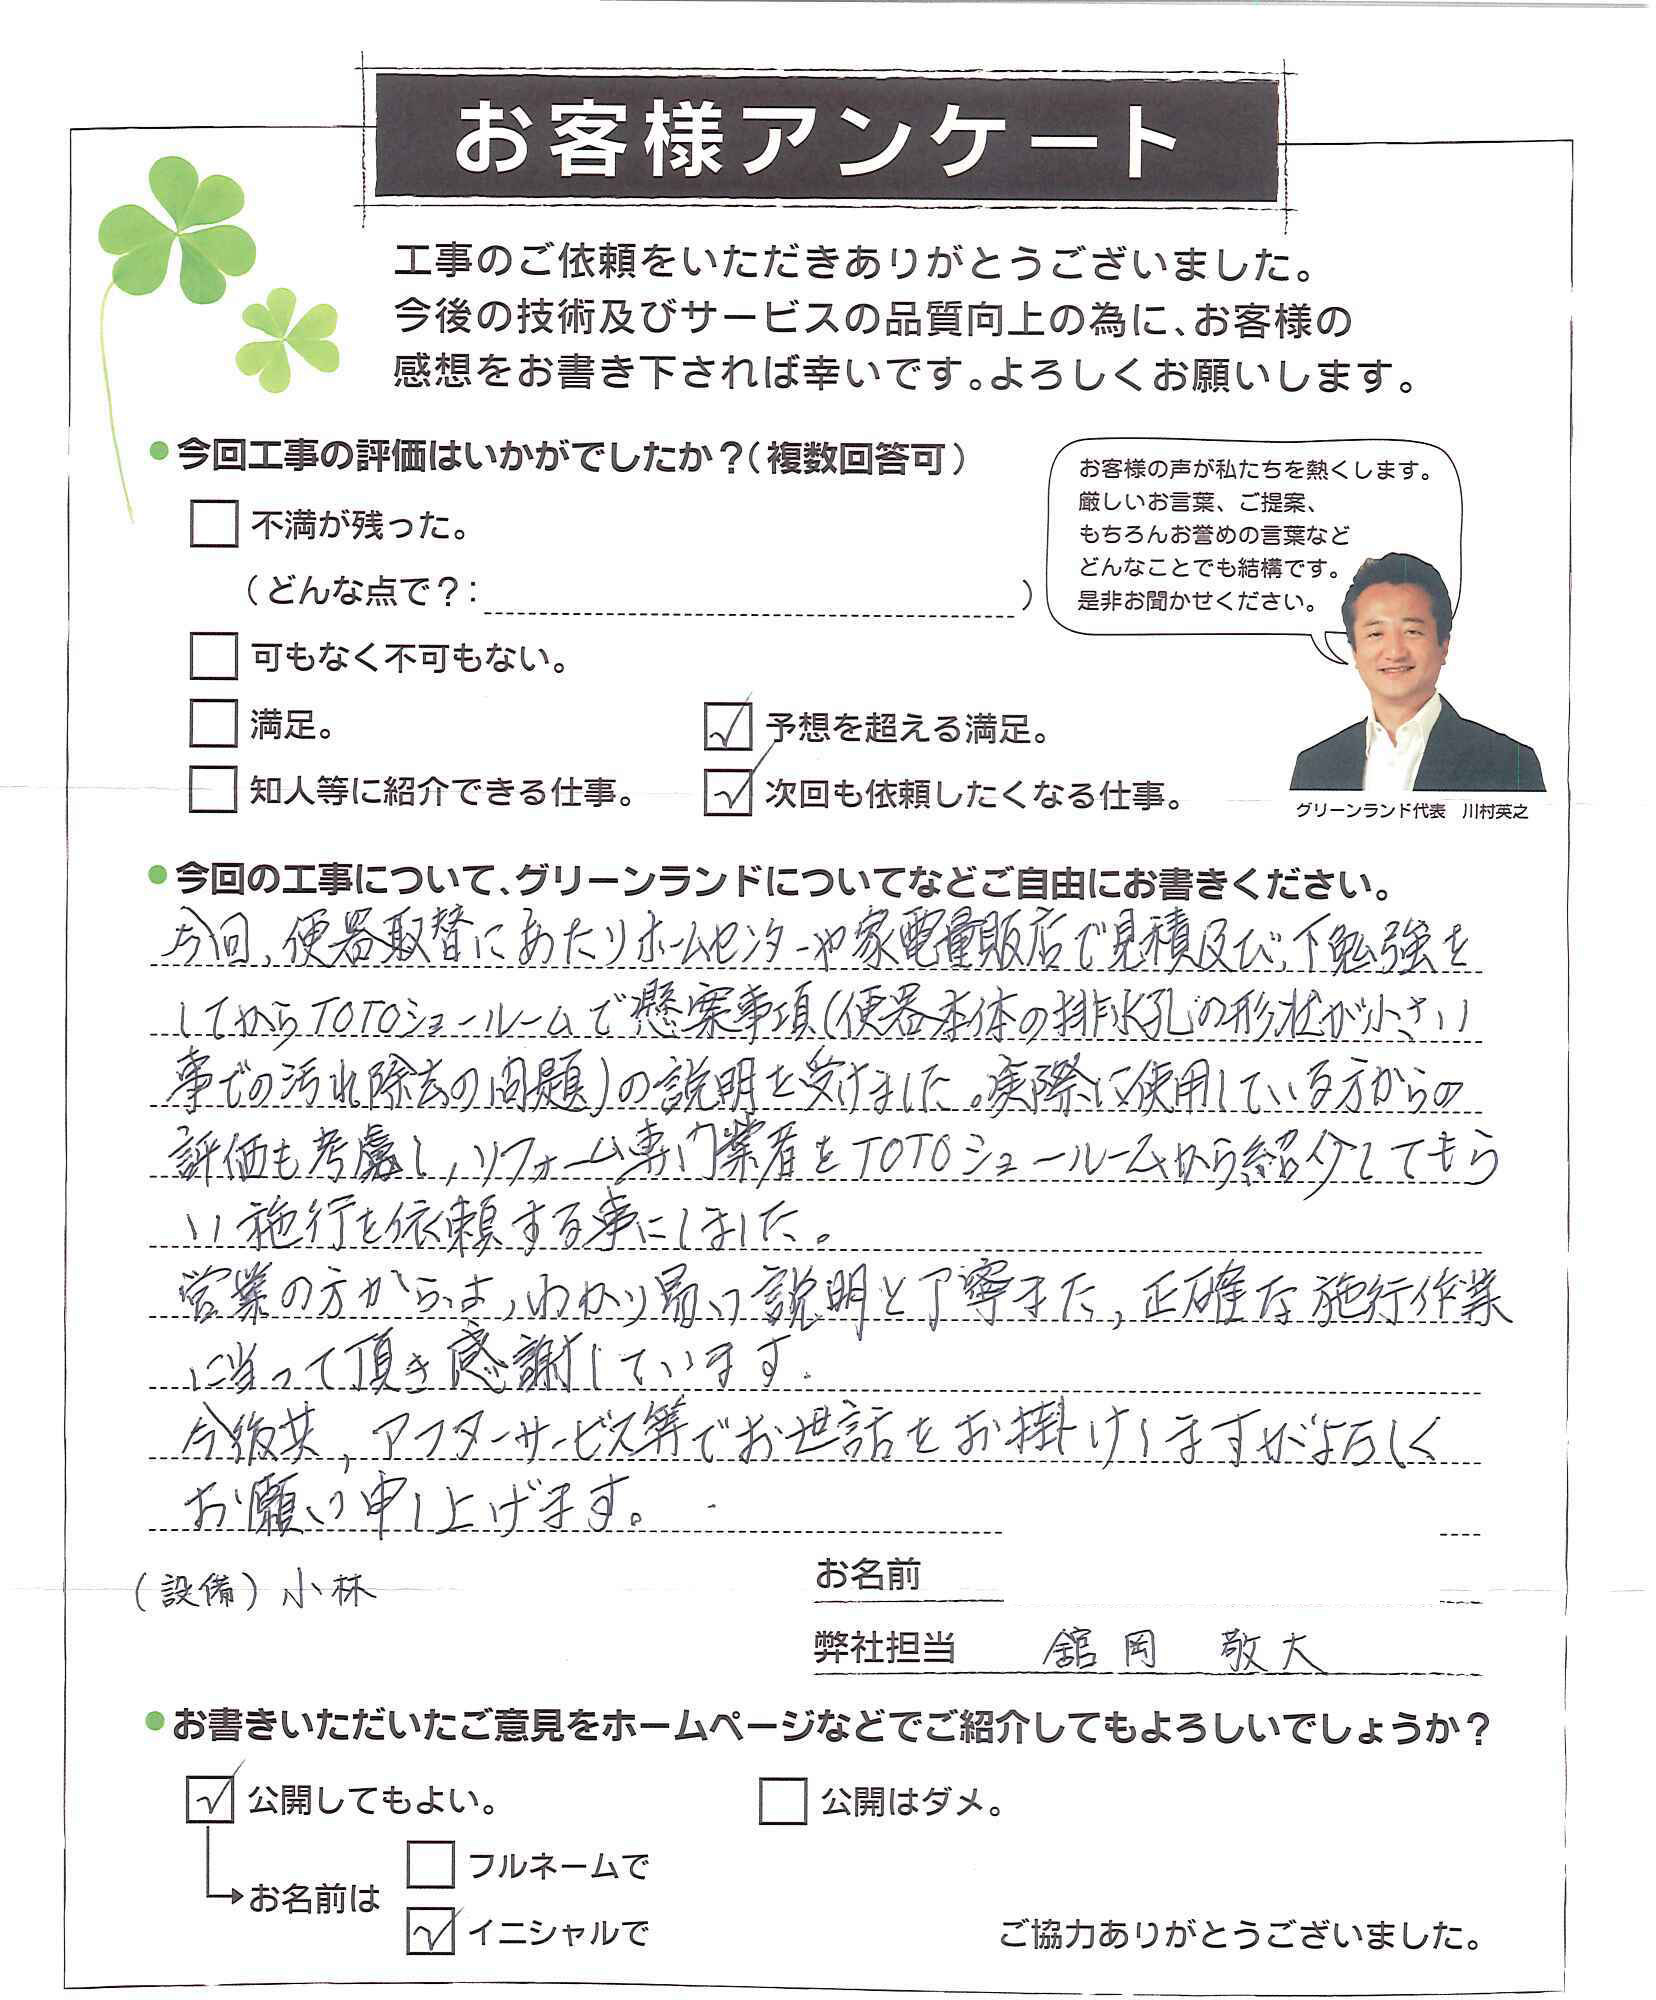 お客様アンケート
工事のご依頼をいただきありがとうございました。
今後の技術及びサービスの品質向上の為に、お客様の
感想をお書き下されば幸いです。よろしくお願いします。
●今回工事の評価はいかがでしたか？（複数回答可）
不満が残った。
（どんな点で？：　　　　）
可もなく不可もない。
満足。
予想を超える満足。
知人等に紹介できる仕事。
次回も依頼したくなる仕事。
お客様の声が私たちを熱くします。
厳しいお言葉、ご提案、
もちろんお誉めの言葉など
どんなことでも結構です。
是非お聞かせください。
グリーンランド代表　川村英之
●今回の工事について、グリーンランドについてなどご自由にお書きください。
今回、便器取替にあたりホームセンターや家電量販店で見積及び、下勉強を
してからTOTOショールームで懸案事項（便器本体の排水孔の形状が小さい
事での汚れ除去の問題）の説明を受けました。実際に使用している方からの
評価も考慮し、リフォーム専門業者をTOTOショールームから紹介してもら
い施行を依頼する事にしました。
営業の方からは、わかり易い説明と丁寧また、正確な施行作業
に当って頂き感謝しています.
今後共、アフターサービス等でお世話をお掛けしますがよろしく
お願い申し上げます。
（設備）小林
お名前
弊社担当　舘岡　敬大
●お書きいただいたご意見をホームページなどでご紹介してもよろしいでしょうか？
公開してもよい。
公開はダメ。
お名前は
フルネームで
イニシャルで
ご協力ありがとうございました。